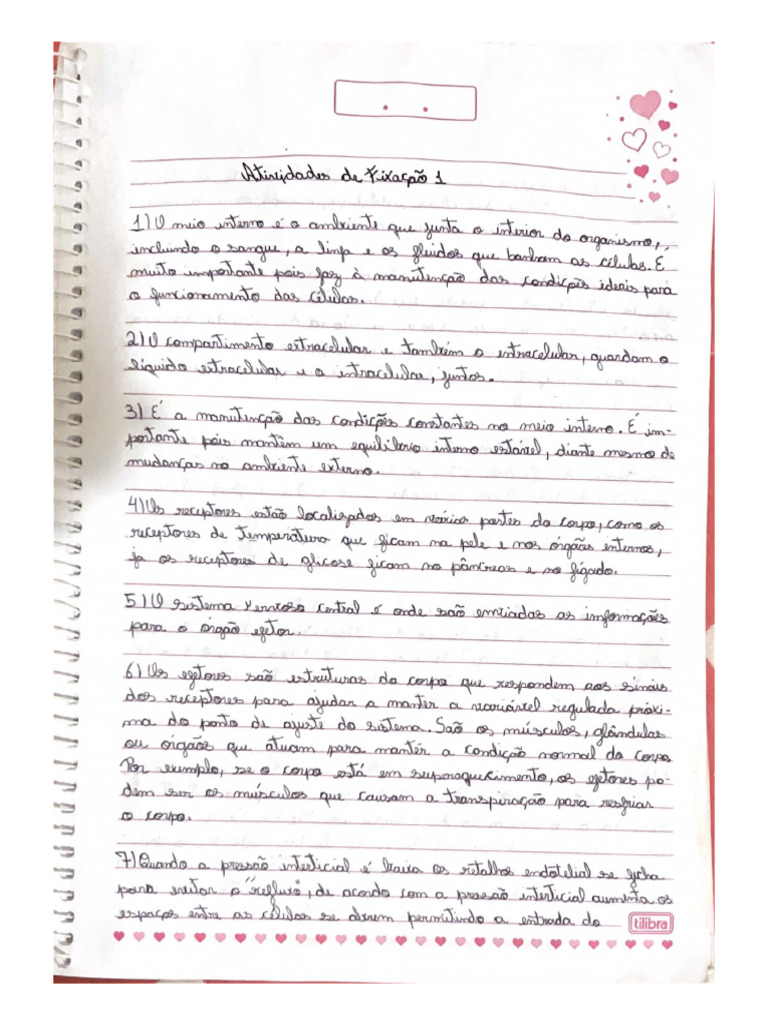 Atividades de Fixação 1
1) O meio interno é o ambiente que junta o interior do organismo,,
incluindo o sangue, a linfa e os fluidos que banham as células. E
muito importante pois faz à manutenção das condições ideais para
o funcionamento das células.
2) O compartimento extracelular e também o intracelular, guardam o
líquido extracelular e o intracelular, juntos.
3) É a manutenção das condições constantes no meio interno. É im-
portante pois mantêm um equilíbrio interno estável, diante mesmo de
mudanças no ambiente externo.
4) Os receptores estão localizados em vários partes do corpo, como os
receptores de temperatura que ficam na pele e nos órgãos internos,
ja os receptores de glicose ficam no pâncreas e no fígado.
5) O sistema Nervoso central é onde são enviadas as informações
para o órgão efetor.
6) Os efetores são estruturas do corpo que respondem aos sinais
dos receptores para ajudar a manter a variável regulada próxi-
ma do ponto de ajuste do sistema. São os músculos, glândulas
ou órgãos que atuam para mantér a condição normal do corpo.
Por exemplo, se o corpo está em superaquecimento, os efetores po-
dem ser os músculos que causam a transpiração para resfriar
o corpo.
7) Quando a pressão interticial é baixa os retalhos endotelial se fecha
para evitar o "refluxo", de acordo com a pressão interticial aumenta os
espaços entre as células se abrem permitindo a entrada do
tilibra